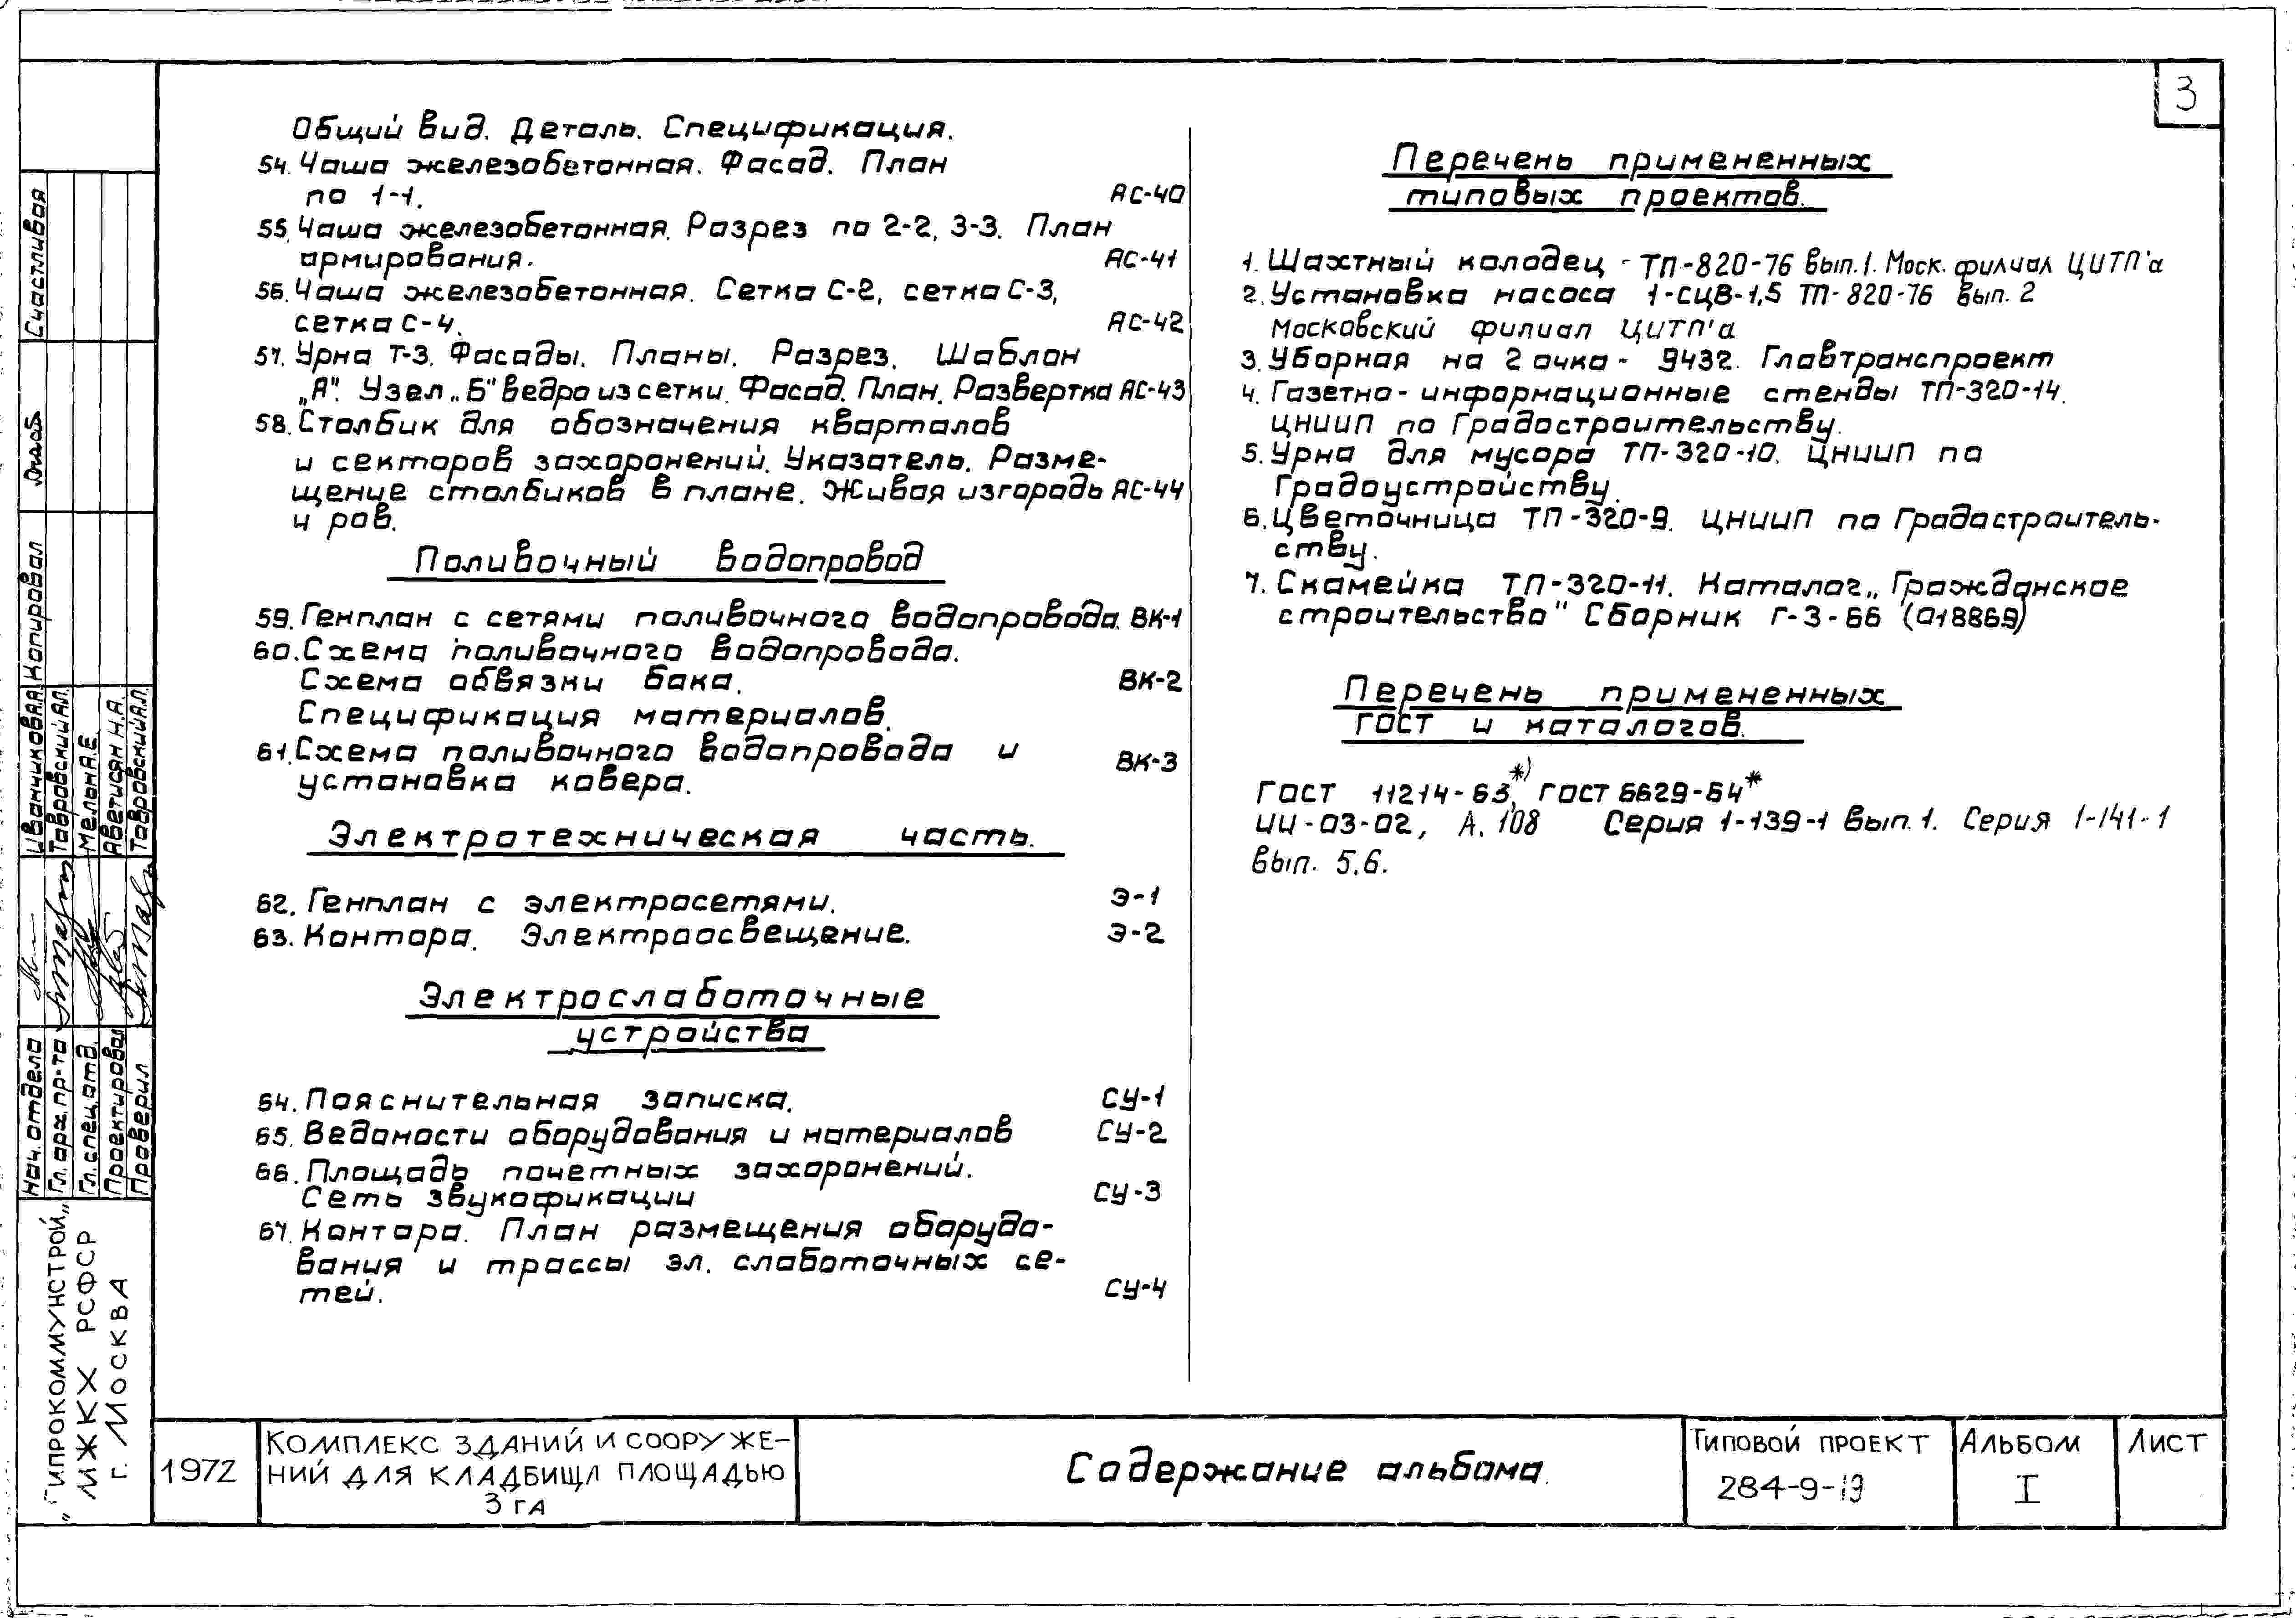 3
Общий вид. Деталь. Спецификация.
54. Чаша железобетонная. Фасад. План
по 1-1. АС-40
55. Чаша железобетонная. Разрез по 2-2, 3-3. План
армирования. АС-41
56. Чаша железобетонная. Сетка С-2, сетка С-3,
сетка С-4. АС-42
57. Урна Т-3. Фасады. Планы. Разрез. Шаблон
„А". Узел „Б" ведро из сетки. Фасад. План. Развертка АС-43
58. Столбик для обозначения кварталов
и секторов захоронений. Указатель. Разме-
щение столбиков в плане. Живая изгородь АС-44
и ров.
Поливочный водопровод
59. Генплан с сетями поливочного водопровода. ВК-1
60. Схема поливочного водопровода.
Схема обвязки бака. ВК-2
Спецификация материалов.
61. Схема поливочного водопровода и
установка ковера. ВК-3
Электротехническая часть.
62. Генплан с электросетями. Э-1
63. Контора. Электроосвещение. Э-2
Электрослаботочные
устройства
64. Пояснительная записка. СУ-1
65. Ведомости оборудования и материалов СУ-2
66. Площадь почетных захоронений.
Сеть звукофикации СУ-3
67. Контора. План размещения оборудо-
вания и трассы эл. слаботочных се-
тей. СУ-4
Перечень примененных
типовых проектов.
1. Шахтный колодец - ТП-820-76 вып. 1. Моск. филиал ЦИТП'а
2. Установка насоса 1-СЦВ-1,5 ТП-820-76 вып. 2
Московский филиал ЦИТП'а
3. Уборная на 2 очка - 9432. Главтранспроект
4. Газетно-информационные стенды ТП-320-14.
ЦНИИП по Градостроительству.
5. Урна для мусора ТП-320-10. ЦНИИП по
Градоустройству.
6. Цветочница ТП-320-9. ЦНИИП по Градостроитель-
ству.
7. Скамейка ТП-320-11. Каталог „Гражданское
строительство" Сборник Г-3-66 (018869)
Перечень примененных
ГОСТ и каталогов.
ГОСТ 11214-63*), ГОСТ 6629-64*
ИИ-03-02, А. 108 Серия 1-139-1 вып. 1. Серия 1-141-1
вып. 5.6.
Счастливая
Копировал
Иванчикова Л.
Тавровский А.Л.
Мелон А.Е.
Аветисян Н.А.
Тавровский А.Л.
Нач. отдела
Гл. арх. пр-та
Гл. спец. отд.
Проектировал
Проверил
„Гипрокоммунстрой„
МЖКХ РСФСР
г. Москва
1972
Комплекс зданий и сооруже-
ний для кладбищ площадью
3 га
Содержание альбома.
Типовой проект
284-9-13
Альбом
I
Лист